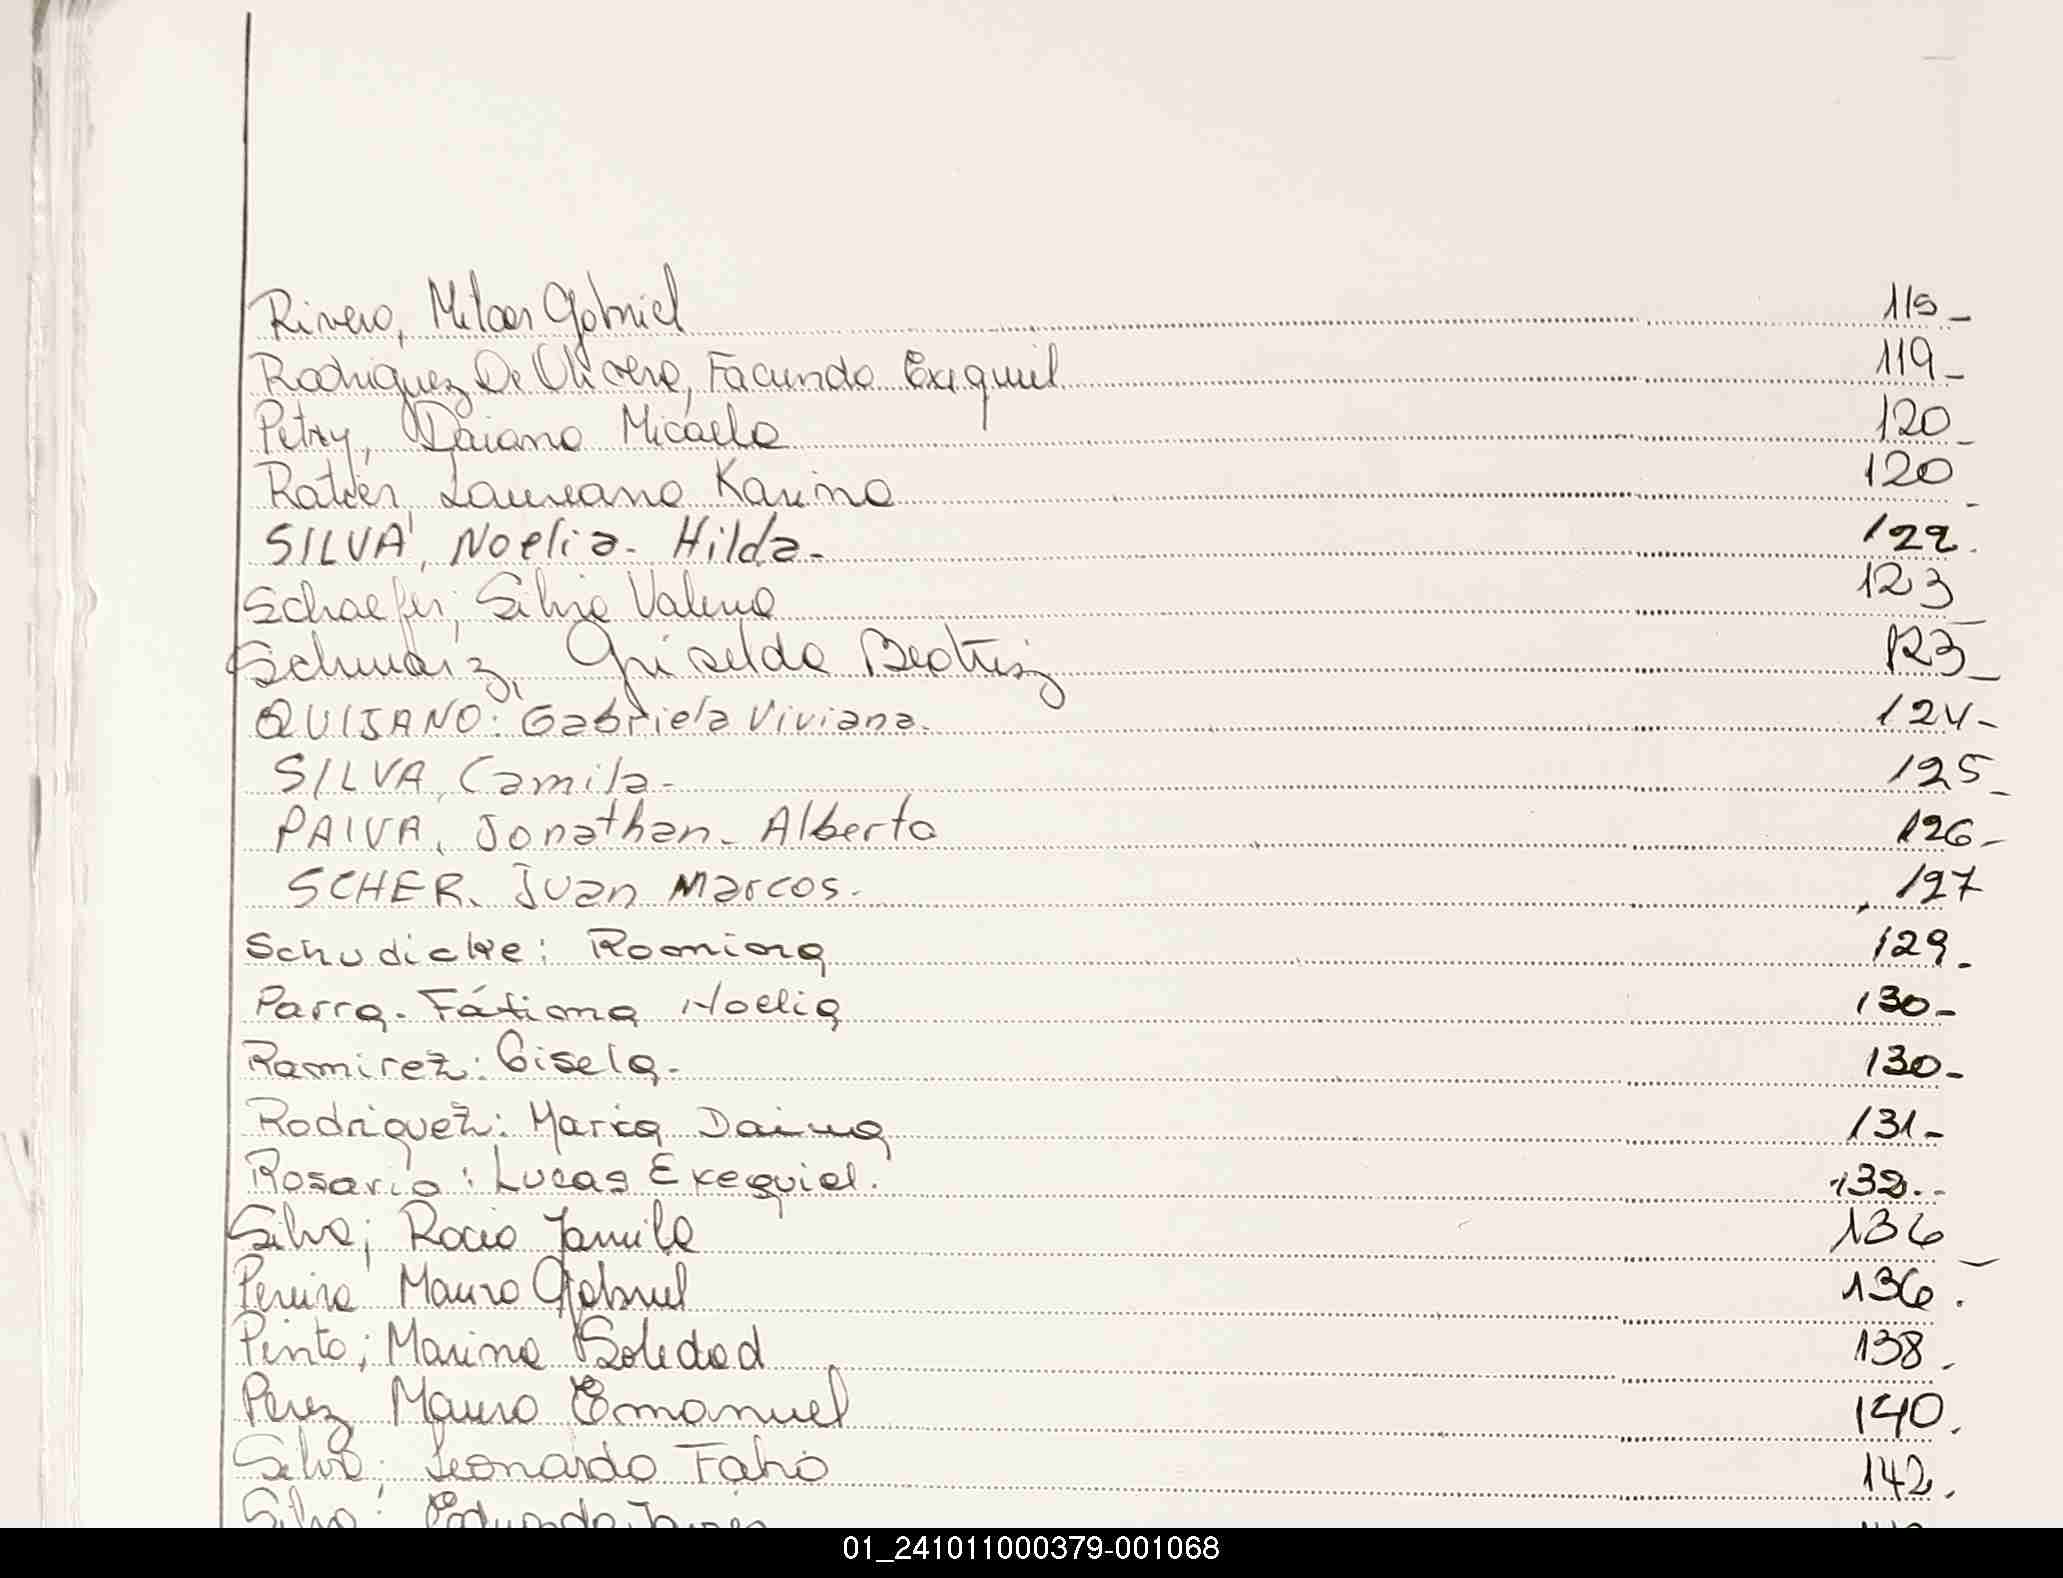 Rivero, Milton Gabriel 115-
Rodriguez De Olivera, Facundo Exequiel 119-
Petry, Daiana Micaela 120-
Ratier, Laureano Karina 120-
SILVA, Noelia- Hilda- 122.
Schaefer; Silvia Valeria 123-
Schwarz, Griselda Beatriz 123-
QUIJANO: Gabriela Viviana. 124-
SILVA, Camila- 125-
PAIVA, Jonathan- Alberto 126-
SCHER, Juan Marcos. 127
Schudicke: Romina 129-
Parra. Fátima Noelia 130-
Ramirez: Gisela. 130-
Rodriguez: Maria Daiana 131-
Rosario: Lucas Exequiel. 132.-
Silva; Rocio Yamila 136-
Pereira Mauro Gabriel 136.
Pinto; Marina Soledad 138.
Perez Mauro Emanuel 140.
Silva; Leonardo Fabio 142.
Silva: Eduardo Javier
01_241011000379-001068